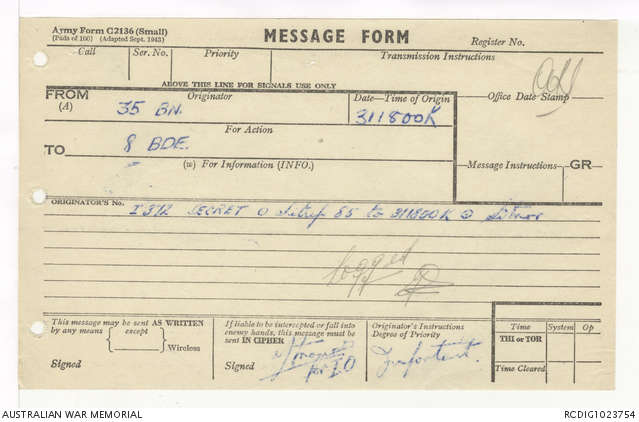 Army Form C2136 (Small)
(Pads of 100) (Adapted Sept. 1943)
MESSAGE FORM
Register No.
Call
Ser. No.
Priority
Transmission Instructions
ABOVE THIS LINE FOR SIGNALS USE ONLY
FROM
(A)
Originator
35 BN.
Date—Time of Origin
311800K
Office Date Stamp
For Action
TO
8 BDE.
(w) For Information (INFO.)
Message Instructions
GR
ORIGINATOR'S No.
I 372 SECRET O sitrep 85 to 311800K O sitnor
logged
This message may be sent AS WRITTEN
by any means
except
Wireless
Signed
If liable to be intercepted or fall into
enemy hands, this message must be
sent IN CIPHER
Signed
for IO
Originator's Instructions
Degree of Priority
Important.
Time
System
Op
THI or TOR
Time Cleared
AUSTRALIAN WAR MEMORIAL
RCDIG1023754